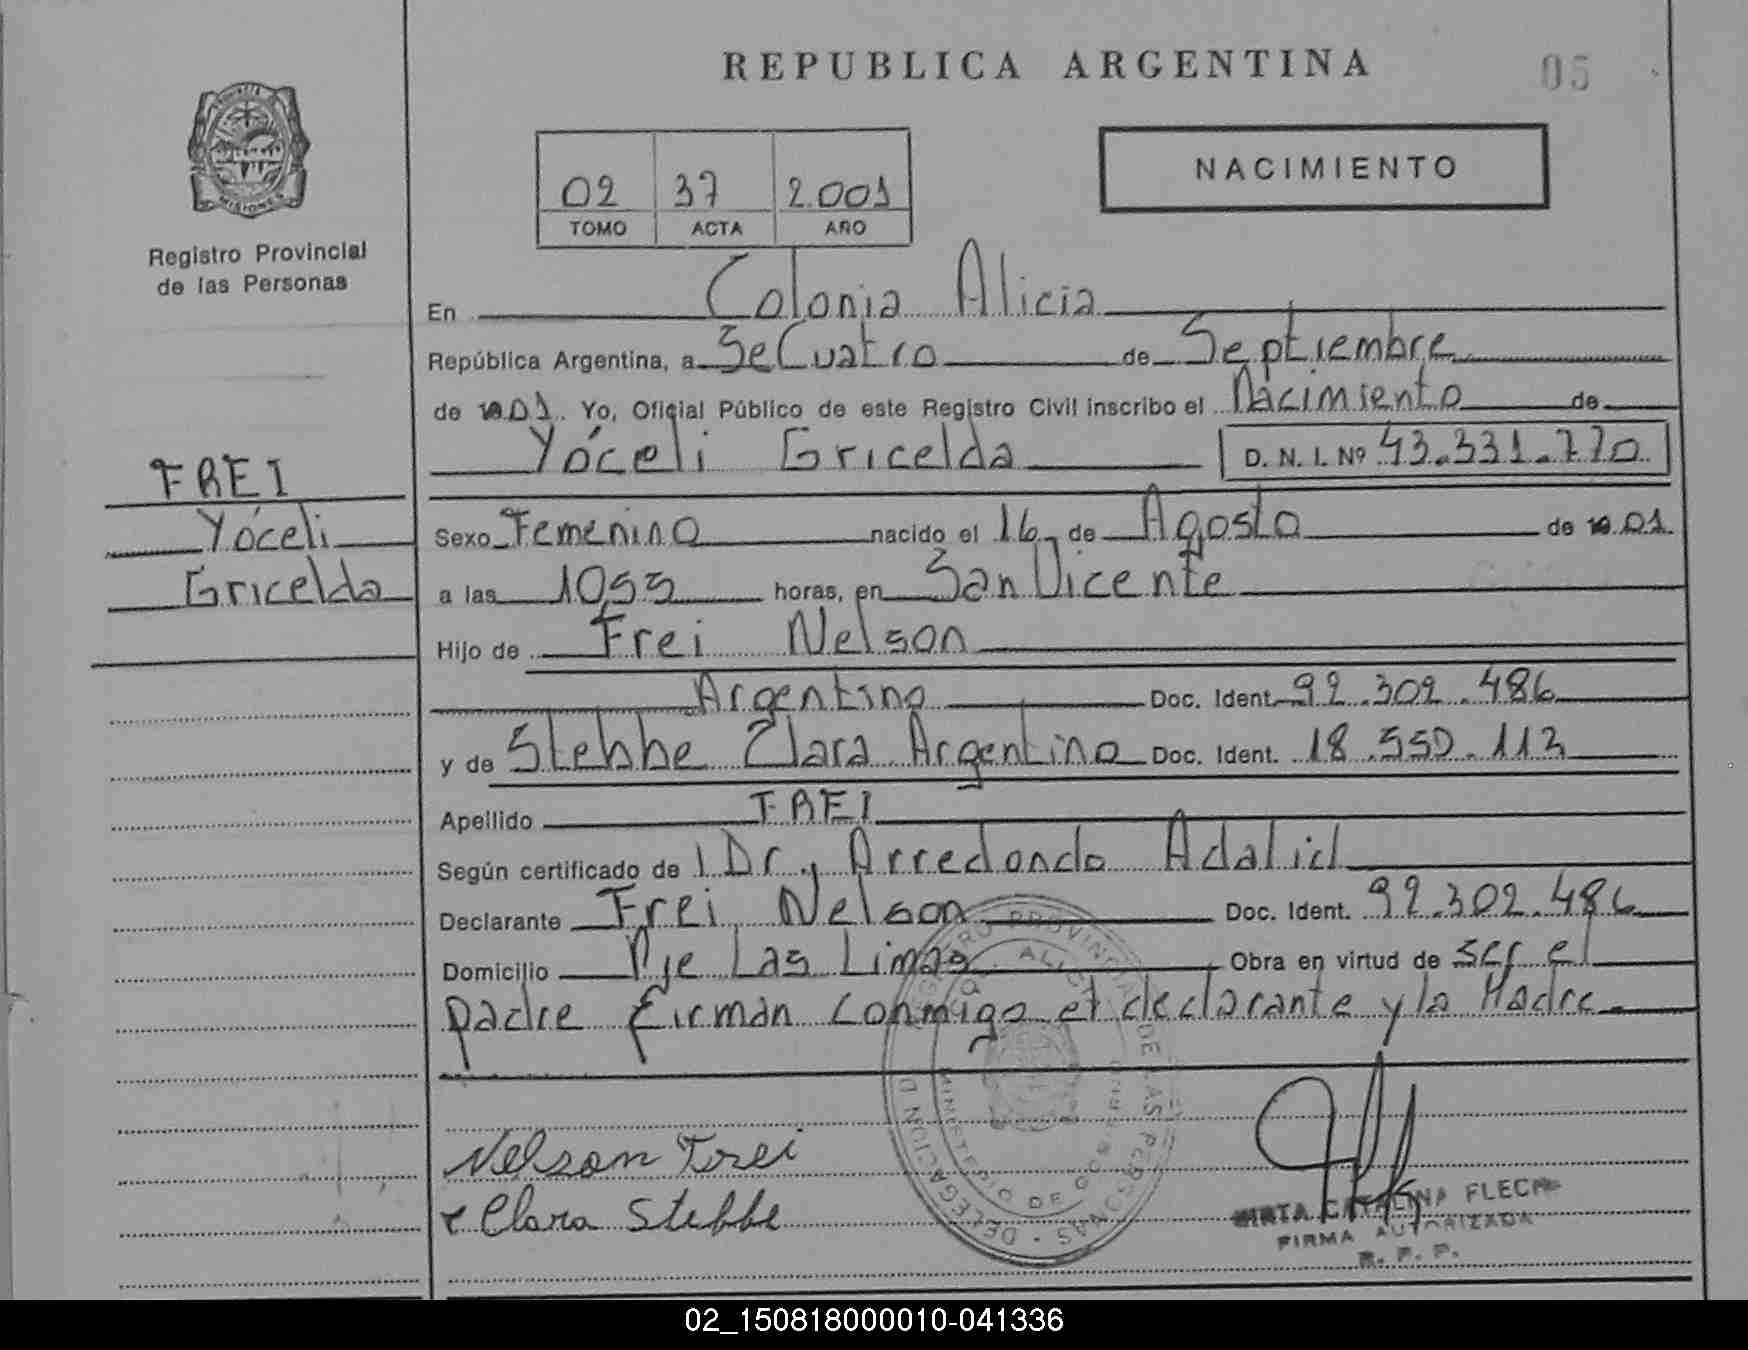 REPUBLICA ARGENTINA
05
NACIMIENTO
02 37 2.001
TOMO ACTA AÑO
Registro Provincial
de las Personas
En Colonia Alicia
República Argentina, a Cuatro de Septiembre
de 01. Yo, Oficial Público de este Registro Civil inscribo el Nacimiento de
Yóceli Gricelda D. N. I. Nº 43.331.770
FREI
Yóceli
Gricelda
Sexo Femenino nacido el 16 de Agosto de 01.
a las 1055 horas, en San Vicente
Hijo de Frei Nelson
Argentino Doc. Ident. 92.302.486
y de Stebbe Clara Argentino Doc. Ident. 18.550.113
Apellido FREI
Según certificado de l Dr. Arredondo Adalid
Declarante Frei Nelson Doc. Ident. 92.302.486
Domicilio Pje Las Limas Obra en virtud de ser el
padre firman conmigo el declarante y la Madre
Nelson Frei
Clara Stebbe
CATALINA FLECK
FIRMA AUTORIZADA
R. P. P.
02_150818000010-041336